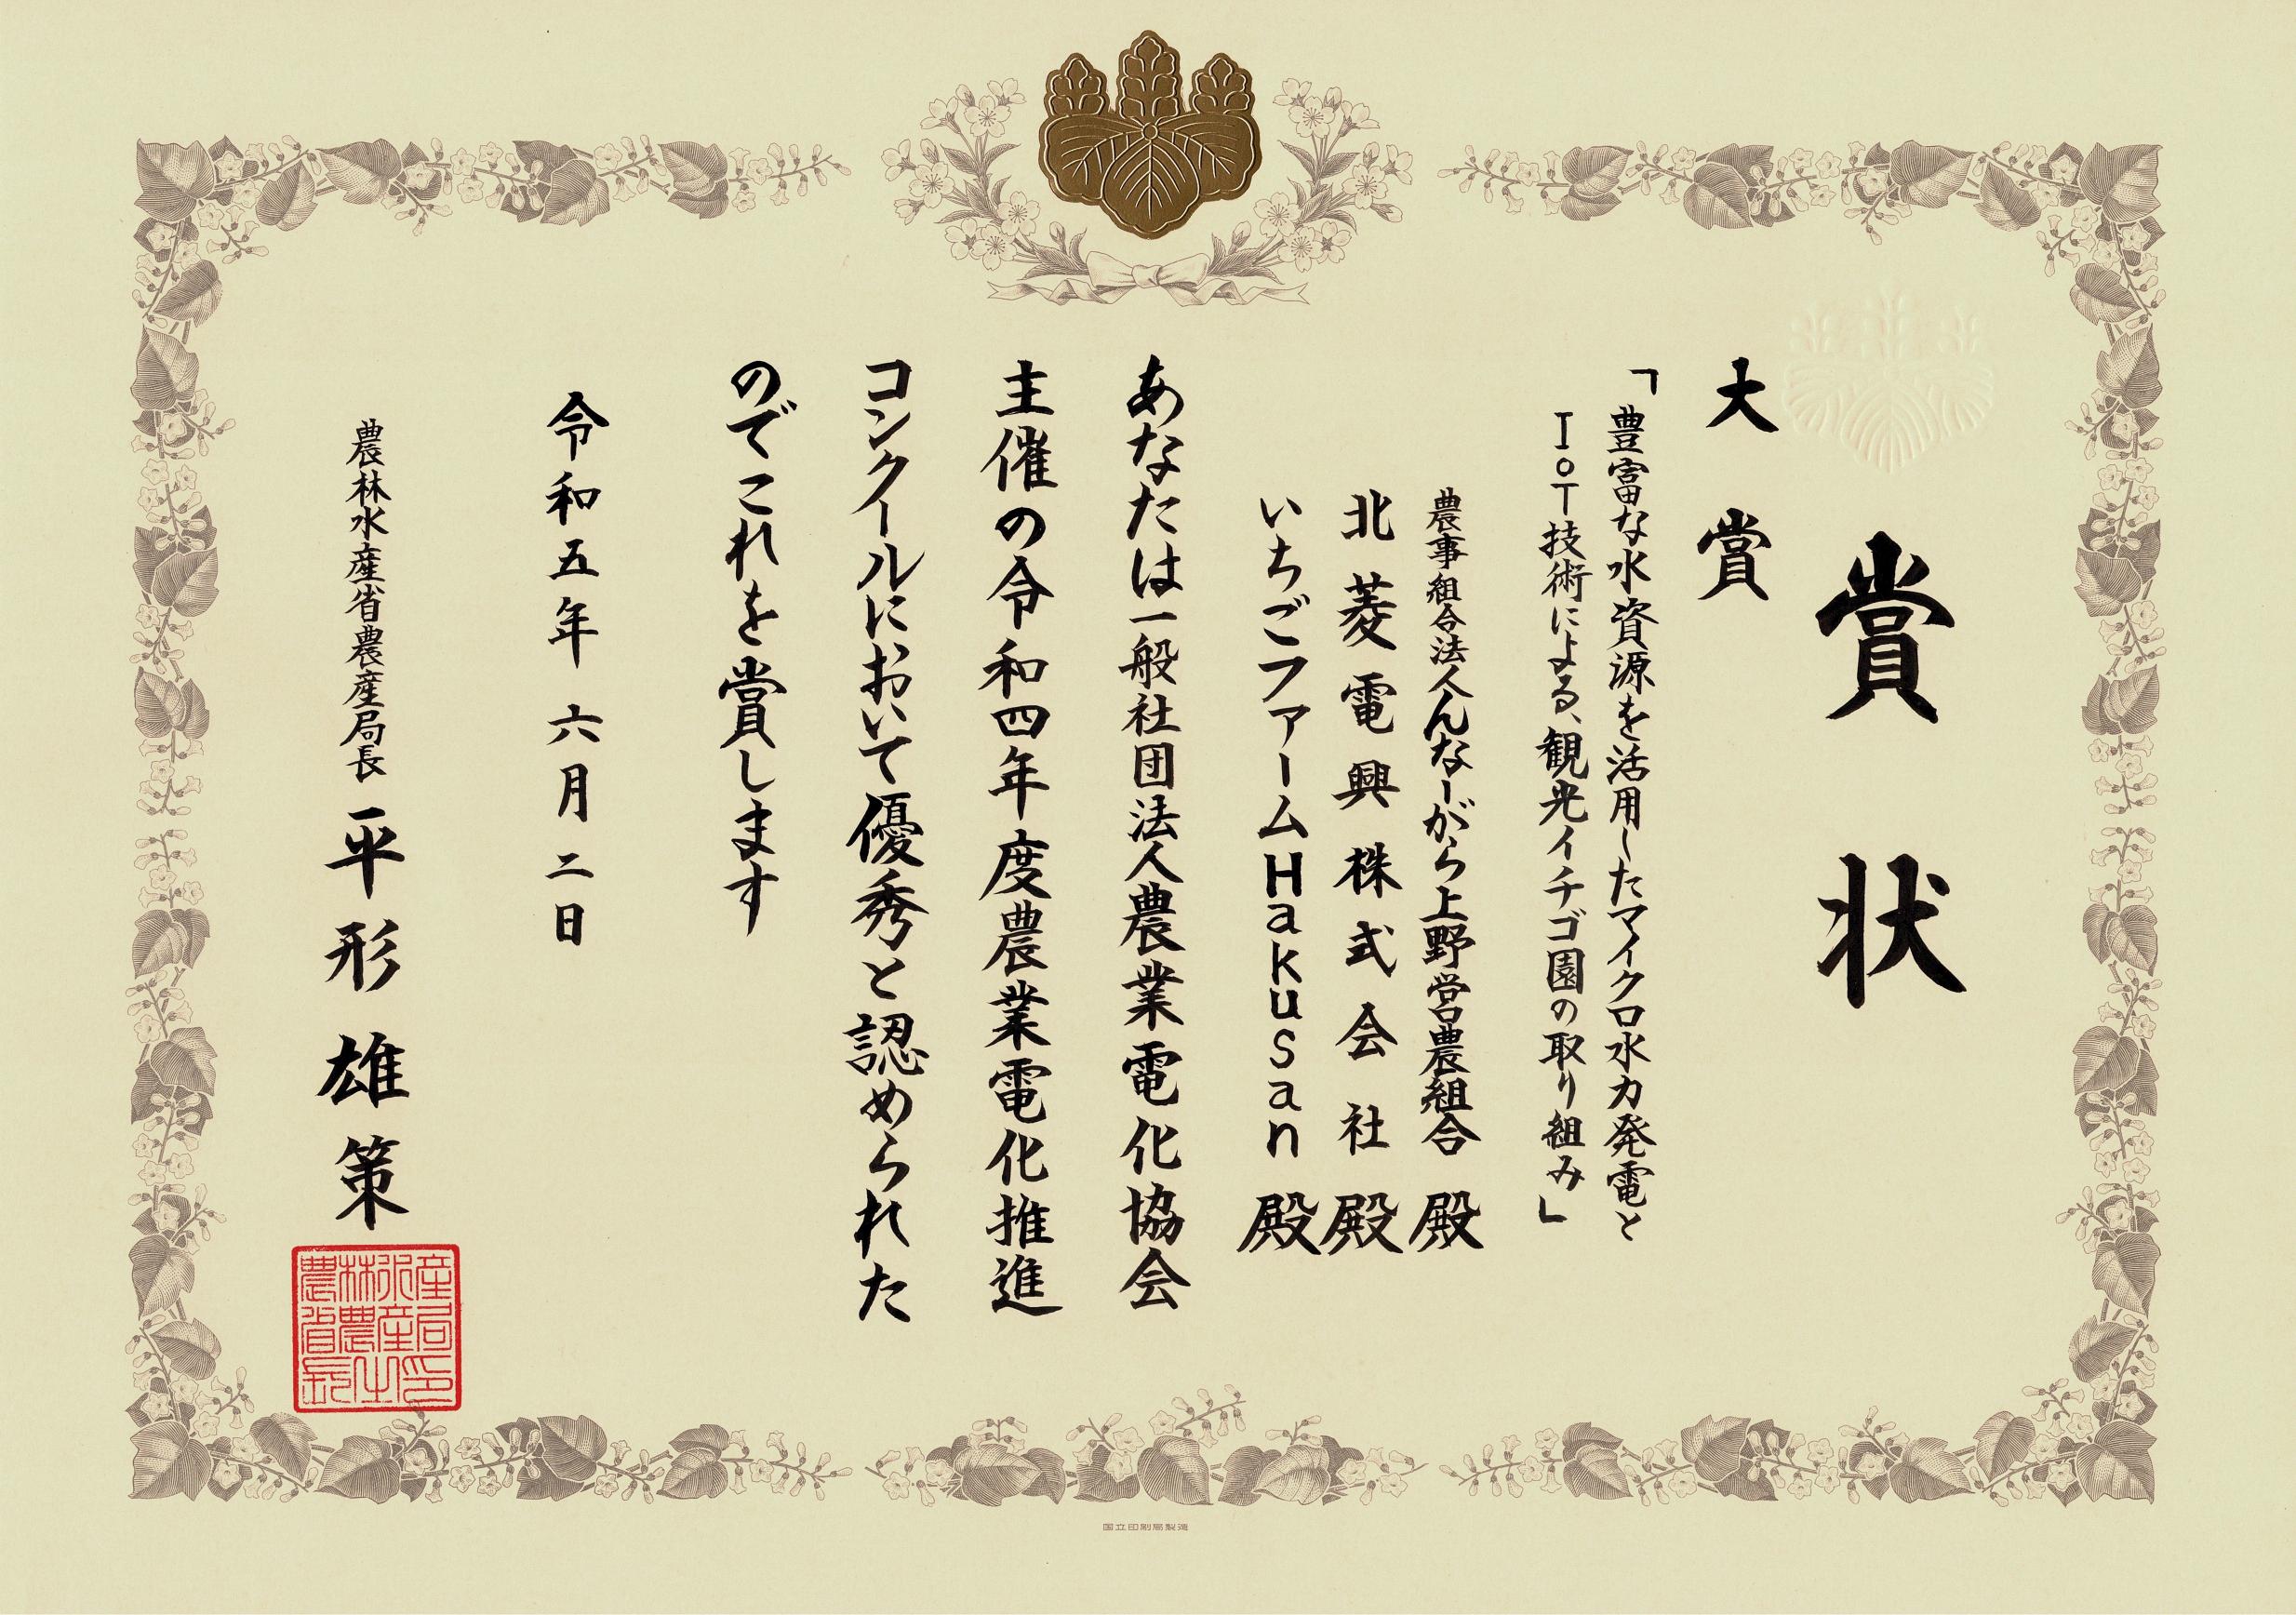 賞状
大賞
「豊富な水資源を活用したマイクロ水力発電と
IoT技術による、観光イチゴ園の取り組み」
農事組合法人んなーがら上野営農組合 殿
北菱電興株式会社 殿
いちごファームHakusan 殿
あなたは一般社団法人農業電化協会
主催の令和四年度農業電化推進
コンクールにおいて優秀と認められた
のでこれを賞します
令和五年六月二日
農林水産省農産局長 平形雄策
農林水産
省農産局
長之印
国立印刷局製造